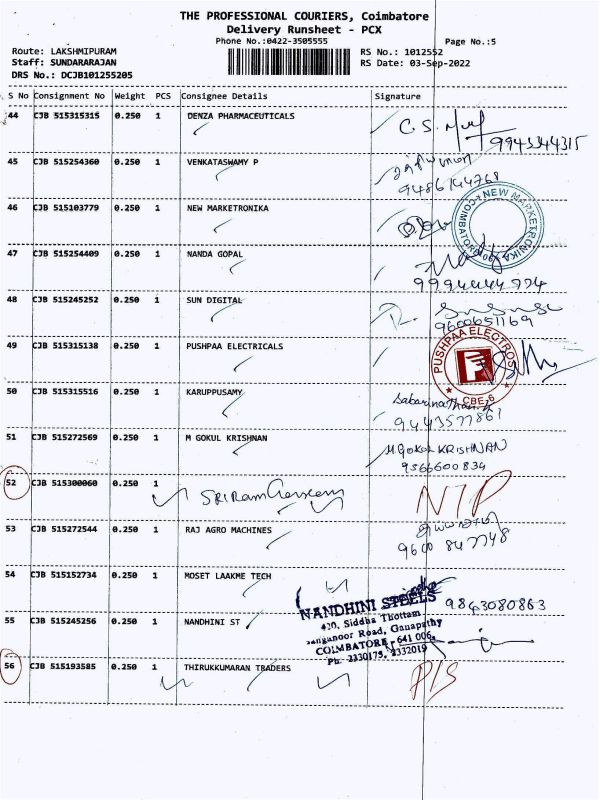 THE PROFESSIONAL COURIERS, Coimbatore
Delivery Runsheet - PCX
Phone No.:0422-3505555
Page No.:5
Route: LAKSHMIPURAM
RS No.: 1012552
Staff: SUNDARARAJAN
RS Date: 03-Sep-2022
DRS No.: DCJB101255205
S No Consignment No Weight PCS Consignee Details Signature
44 CJB 515315315 0.250 1 DENZA PHARMACEUTICALS
9943344315
45 CJB 515254360 0.250 1 VENKATASWAMY P
9486144768
46 CJB 515103779 0.250 1 NEW MARKETRONIKA
NEW MARKETRONIKA
COIMBATORE
47 CJB 515254409 0.250 1 NANDA GOPAL
9994444774
48 CJB 515245252 0.250 1 SUN DIGITAL
9600651169
49 CJB 515315138 0.250 1 PUSHPAA ELECTRICALS
PUSHPAA ELECTROS
CBE-6
50 CJB 515315516 0.250 1 KARUPPUSAMY
9443577861
51 CJB 515272569 0.250 1 M GOKUL KRISHNAN
M.GOKUL KRISHNAN
9566600834
52 CJB 515300060 0.250 1
NTP
53 CJB 515272544 0.250 1 RAJ AGRO MACHINES
9600 847748
54 CJB 515152734 0.250 1 MOSET LAAKME TECH
9843080863
NANDHINI STEELS
420, Siddha Thottam
Road, Ganapathy
COIMBATORE - 641 006.
Ph: 2330175, 2332019
55 CJB 515245256 0.250 1 NANDHINI ST
56 CJB 515193585 0.250 1 THIRUKKUMARAN TRADERS
P/S